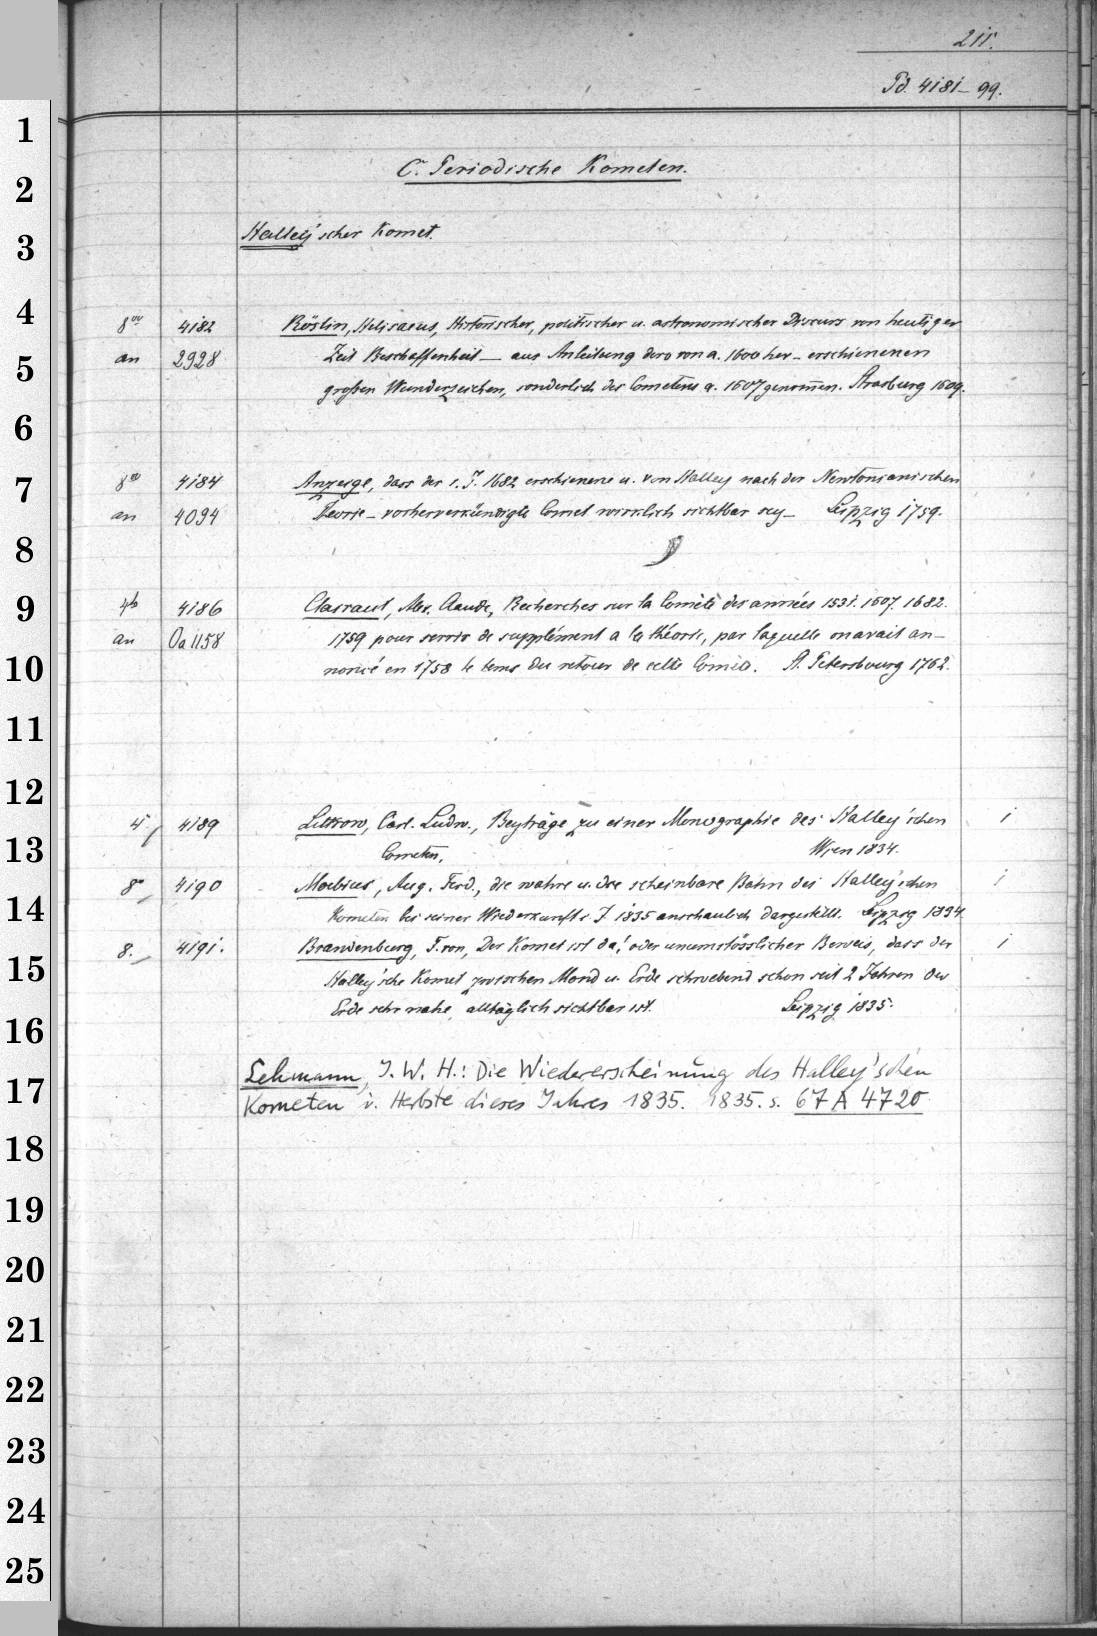 211.
Pd. 4181–99.
1
C. Periodische Kometen.
2
Halley'scher Komet.
3
4
8vo 4182 Röslin, Helisaeus, Historischer, politischer u. astronomischer Discurs von heutiger
5
an 2928 Zeit Beschaffenheit – aus Anleitung dero von a. 1600 her – erschienenen
großen Wunderzeichen, sonderlich des Cometens a. 1607 genommen. Strasburg 1609.
6
7
8vo 4184 Anzeige, dass der i. J. 1682 erschienene u. von Halley nach der Newtonianischen
an 4094 Theorie – vorherverkündigte Comet wirklich sichtbar sey – Leipzig 1759.
8
9
4to 4186 Clairaut, Alex. Claude, Recherches sur la Comète des années 1531. 1607. 1682.
an Oa 1158 1759 pour servir de supplément a la théorie, par laquelle on avait an-
10
noncé en 1758 le tems du retour de cette Comète. St. Petersbourg 1762.
11
12
4° 4189 Littrow, Carl. Ludw., Beyträge zu einer Monographie des Halley'schen 1
13
Cometen, Wien 1834.
8° 4190 Moebius, Aug. Ferd., die wahre u. die scheinbare Bahn des Halley'schen 1
14
Kometen bei seiner Wiederkunft i. J. 1835 anschaulich dargestellt. Leipzig 1834.
8. 4191. Brandenburg, F. von, Der Komet ist da! oder unumstösslicher Beweis, dass der 1
15
Halley'sche Komet zwischen Mond u. Erde schwebend schon seit 2 Jahren der
Erde sehr nahe, alltäglich sichtbar ist. Leipzig 1835.
16
Lehmann, J. W. H.: Die Wiedererscheinung des Halley'schen
17
Kometen i. Herbste dieses Jahres 1835. 1835. s. 67 A 4720
18
19
20
21
22
23
24
25